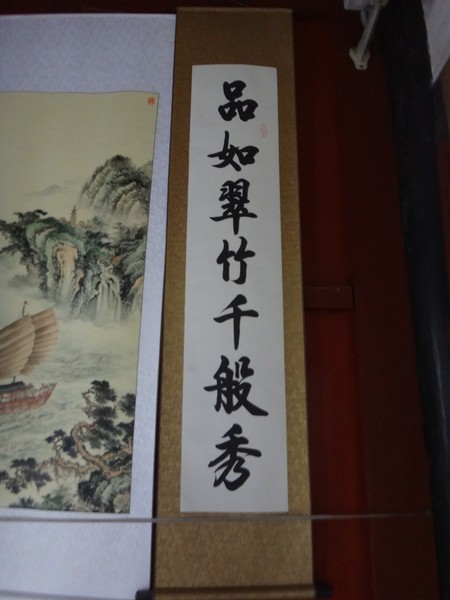 品如翠竹千般秀